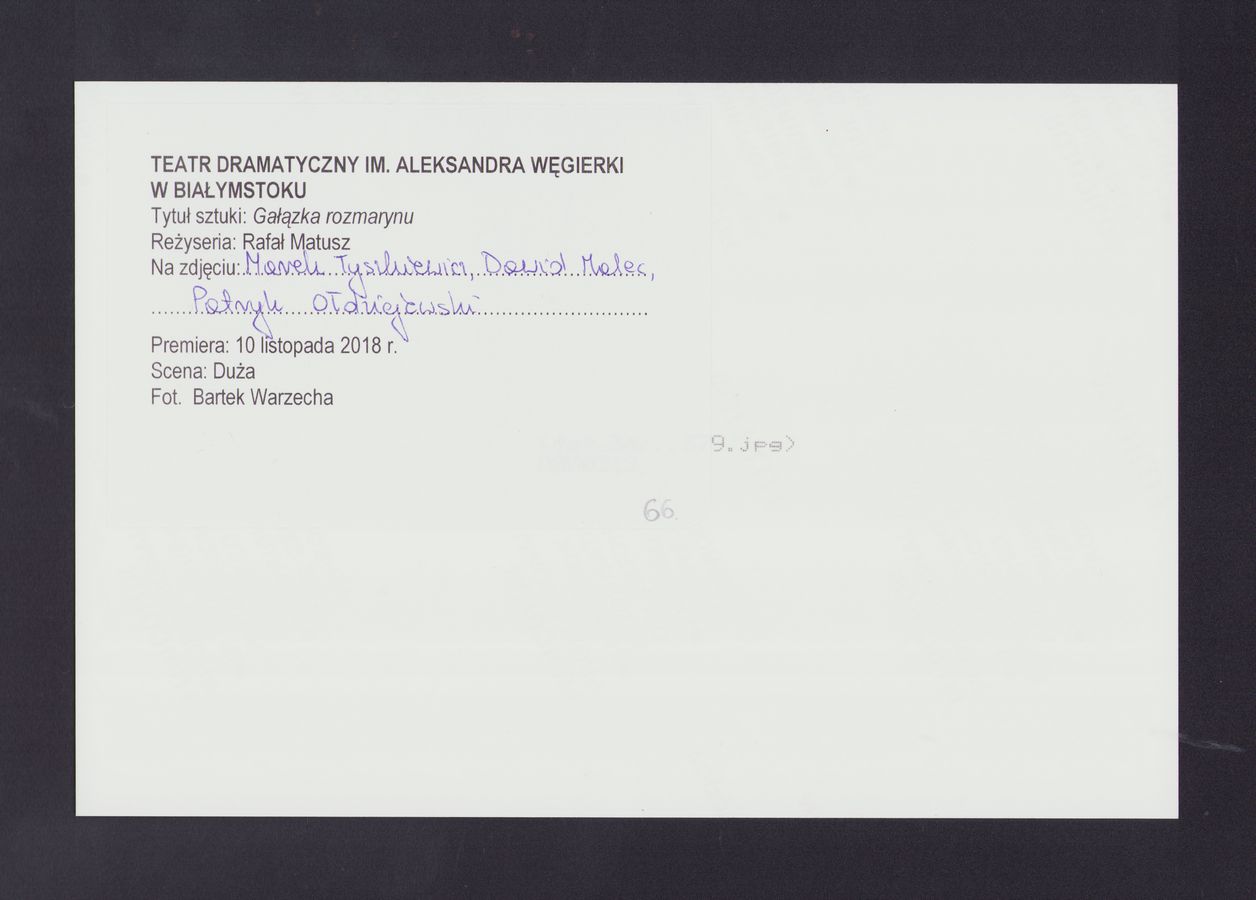 TEATR DRAMATYCZNY IM. ALEKSANDRA WĘGIERKI
W BIAŁYMSTOKU
Tytuł sztuki: Gałązka rozmarynu
Reżyseria: Rafał Matusz
Na zdjęciu: Marek Tyszkiewicz, Dawid Malec,
Patryk Ołdziejewski
Premiera: 10 listopada 2018 r.
Scena: Duża
Fot. Bartek Warzecha
9.jpg>
66